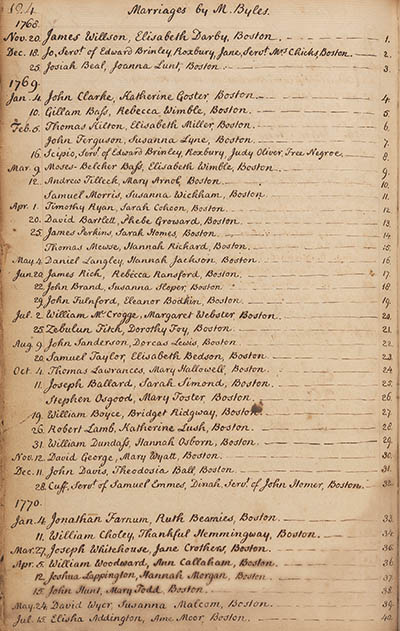 124. Marriages by M. Byles.
1768.
Nov. 20. James Willson, Elisabeth Darby, Boston. 1.
Dec. 18. Jo, Servt. of Edward Brinley Roxbury, Jane, Servt. Mrs. Chicks, Boston. 2.
25. Josiah Beal, Joanna Lunt, Boston. 3.
1769.
Jan. 4. John Clarke, Katherine Goster, Boston. 4.
10. Gillam Bass, Rebecca Wimble, Boston. 5.
Feb. 5. Thomas Hilton, Elisabeth Miller, Boston. 6.
John Ferguson, Susanna Lyne, Boston. 7.
16. Scipio, Servt. of Edward Brinley Roxbury, Judy Oliver, Free Negroe. 8.
Mar. 9. Moses Belcher Bass, Elisabeth Wimble, Boston. 9.
12. Andrew Tilleck, Mary Arnol, Boston. 10.
Samuel Morris, Susanna Wickham, Boston. 11.
Apr. 1. Timothy Ryan, Sarah Cohoon, Boston. 12.
20. David Bartlett, Phebe Groward, Boston. 13.
25. James Perkins, Sarah Homes, Boston. 14.
Thomas Mewse, Hannah Richard, Boston. 15.
May. 4. Daniel Langley, Hannah Jackson, Boston. 16.
Jun. 20. James Rich, Rebecca Ransford, Boston. 17.
22. John Brand, Susanna Sleper, Boston. 18.
29. John Fulnford, Eleanor Bodkin, Boston. 19.
Jul. 2. William McCrogge, Margaret Webster, Boston. 20.
25. Zebulun Fitch, Dorothy Foy, Boston. 21.
Aug. 9. John Sanderson, Dorcas Lewis, Boston. 22.
20. Samuel Taylor, Elisabeth Bedson, Boston. 23.
Oct. 4. Thomas Lawrances, Mary Hallowell, Boston. 24.
11. Joseph Ballard, Sarah Simond, Boston. 25.
Stephen Osgood, Mary Foster, Boston. 26.
19. William Boyce, Bridget Ridgway, Boston. 27.
26. Robert Lamb, Katherine Lush, Boston. 28.
31. William Dundass, Hannah Osborn, Boston. 29.
Nov. 12. David George, Mary Wyatt, Boston. 30.
Dec. 11. John Davis, Theodosia Ball, Boston. 31.
28. Cuff, Servt. of Samuel Emmes, Dinah, Servt. of John Homer, Boston. 32.
1770.
Jan. 4. Jonathan Farnum, Ruth Beamies, Boston. 33.
11. William Choley, Thankful Hemmingway, Boston. 34.
Mar. 27. Joseph Whitehouse, Jane Crothers, Boston. 35.
Apr. 5. William Woodward, Ann Callaham, Boston. 36.
12. Joshua Lappington, Hannah Morgan, Boston. 37.
15. John Hunt, Mary Todd, Boston. 38.
May. 24. David Wyer, Susanna Malcom, Boston. 39.
Jul. 15. Elisha Addington, Ame Moor, Boston. 40.